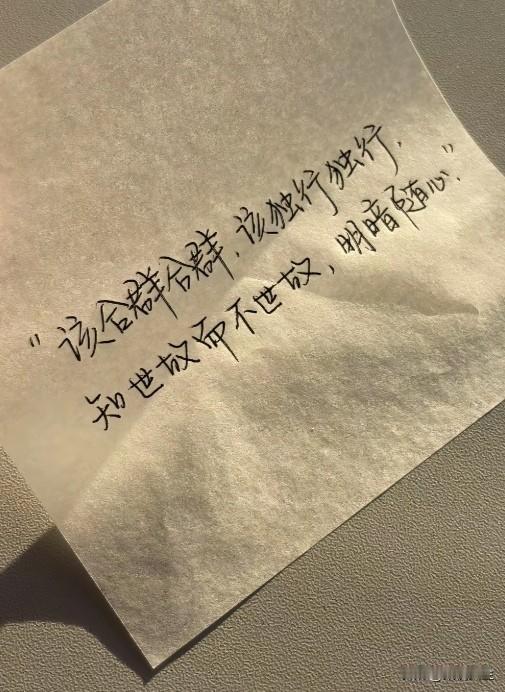 “该合群合群，该独行独行，
知世故而不世故，明暗随心”